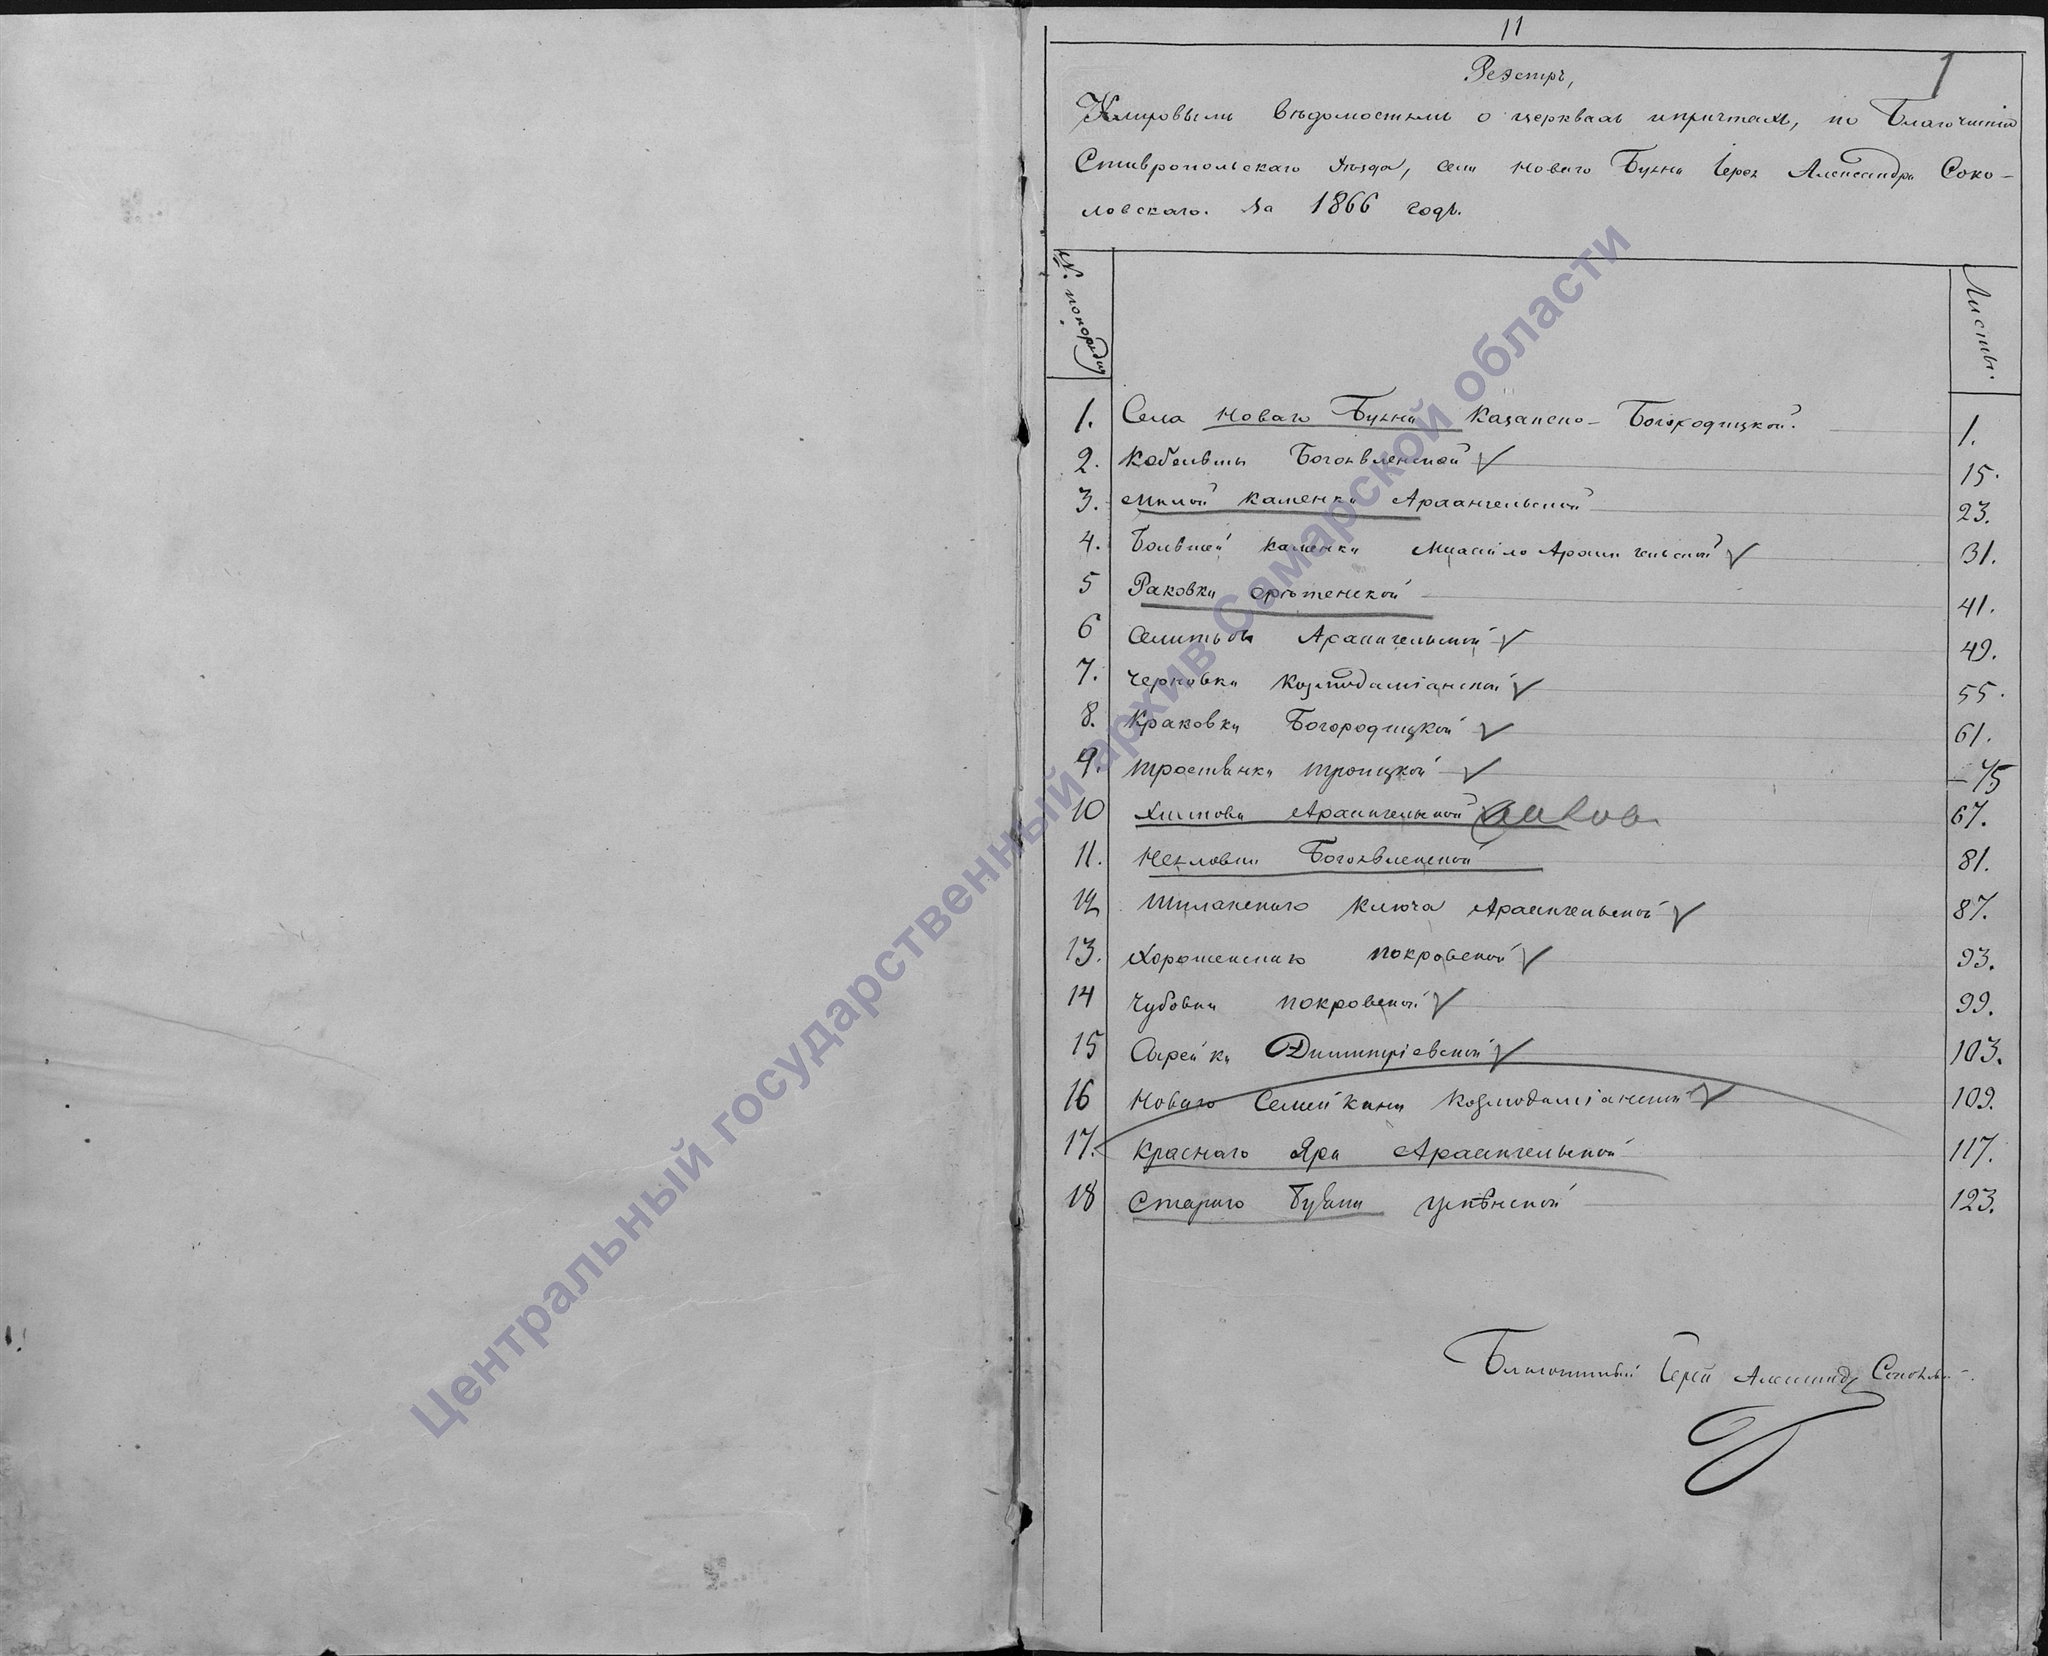 11
1
Реэстръ,
Клировымъ вѣдомостямъ о церквахъ и причтахъ, по Благочинію
Ставропольскаго уѣзда, села Новаго Буяна Іерея Александра Соко-
ловскаго. За 1866 годъ.
№. по порядку
Листы.
1. Села Новаго Буяна Казанско-Богородицкой. 1.
2. Кобельмы Богоявленской 15.
3. Малой Каменки Архангельской 23.
4. Большей Каменки Михаило Архангельской 31.
5 Раковки Срѣтенской 41.
6 Архангельской 49.
7. Черновки Козмодаміанской 55.
8. Краковки Богородицкой 61.
9. Тростянки Троицкой 75
10 Архангельской 67.
11. Неяловки Богоявленской 81.
12 Шиланскаго Ключа Архангельской 87.
13. Хорошенькаго Покровской 93.
14 Чубовки Покровской 99.
15 Сырейки Димитріевской 103.
16 Новаго Семейкина Козмодаміанской 109.
17. Краснаго Яра Архангельской 117.
18 Стараго Буяна Успѣнской 123.
Благочинный Іерей Александръ Соколовскій
Центральный государственный архив Самарской области